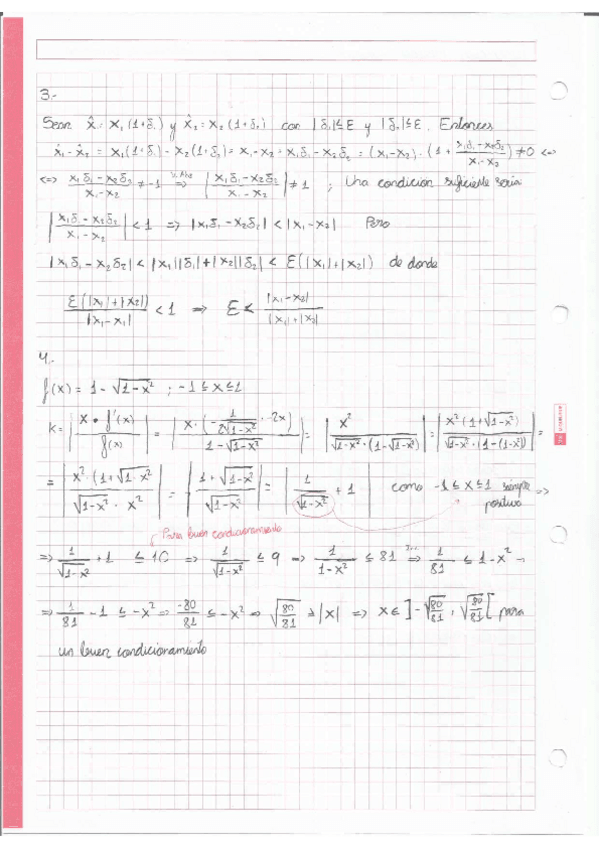 3.-
Sean x̂₁ = x₁(1+δ₁) y x̂₂ = x₂(1+δ₂) con |δ₁|≤ε y |δ₂|≤ε. Entonces
x̂₁ - x̂₂ = x₁(1+δ₁) - x₂(1+δ₂) = x₁ - x₂ + x₁δ₁ - x₂δ₂ = (x₁-x₂)·(1 + (x₁δ₁-x₂δ₂)/(x₁-x₂)) ≠ 0 <=>
<=> (x₁δ₁-x₂δ₂)/(x₁-x₂) ≠ -1 => |(x₁δ₁-x₂δ₂)/(x₁-x₂)| ≠ 1 ; Una condicion suficiente seria
|(x₁δ₁-x₂δ₂)/(x₁-x₂)| < 1 => |x₁δ₁-x₂δ₂| < |x₁-x₂| Pero
|x₁δ₁-x₂δ₂| < |x₁||δ₁|+|x₂||δ₂| < ε(|x₁|+|x₂|) de donde
ε(|x₁|+|x₂|)/|x₁-x₁| < 1 => ε < |x₁-x₂|/(|x₁|+|x₂|)
4.-
f(x) = 1 - √(1-x²) ; -1 ≤ x ≤ 1
k = |x·f'(x)/f(x)| = |x·(-1/(2√(1-x²))·-2x)/(1-√(1-x²))| = |x²/(√(1-x²)·(1-√(1-x²)))| = |x²(1+√(1-x²))/(√(1-x²)·(1-(1-x²)))| =
= |x²·(1+√(1-x²))/(√(1-x²)·x²)| = |(1+√(1-x²))/√(1-x²)| = |1/√(1-x²) + 1| como -1 ≤ x ≤ 1 siempre positivo =>
Para buen condicionamiento
=> 1/√(1-x²) + 1 ≤ 10 => 1/√(1-x²) ≤ 9 => 1/(1-x²) ≤ 81 => 1/81 ≤ 1-x²
=> 1/81 - 1 ≤ -x² => -80/81 ≤ -x² => √(80/81) ≥ |x| => x ∈ ]-√(80/81), √(80/81)[ para
un buen condicionamiento